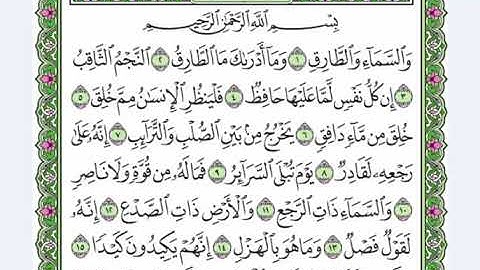 بِسْمِ ٱللَّهِ ٱلرَّحْمَٰنِ ٱلرَّحِيمِ
وَٱلسَّمَآءِ وَٱلطَّارِقِ ١ وَمَآ أَدْرَىٰكَ مَا ٱلطَّارِقُ ٢ ٱلنَّجْمُ ٱلثَّاقِبُ
٣ إِن كُلُّ نَفْسٍ لَّمَّا عَلَيْهَا حَافِظٌ ٤ فَلْيَنظُرِ ٱلْإِنسَٰنُ مِمَّ خُلِقَ ٥
خُلِقَ مِن مَّآءٍ دَافِقٍ ٦ يَخْرُجُ مِنۢ بَيْنِ ٱلصُّلْبِ وَٱلتَّرَآئِبِ ٧ إِنَّهُۥ عَلَىٰ
رَجْعِهِۦ لَقَادِرٌ ٨ يَوْمَ تُبْلَى ٱلسَّرَآئِرُ ٩ فَمَا لَهُۥ مِن قُوَّةٍ وَلَا نَاصِرٍ
١٠ وَٱلسَّمَآءِ ذَاتِ ٱلرَّجْعِ ١١ وَٱلْأَرْضِ ذَاتِ ٱلصَّدْعِ ١٢ إِنَّهُۥ
لَقَوْلٌ فَصْلٌ ١٣ وَمَا هُوَ بِٱلْهَزْلِ ١٤ إِنَّهُمْ يَكِيدُونَ كَيْدًا ١٥